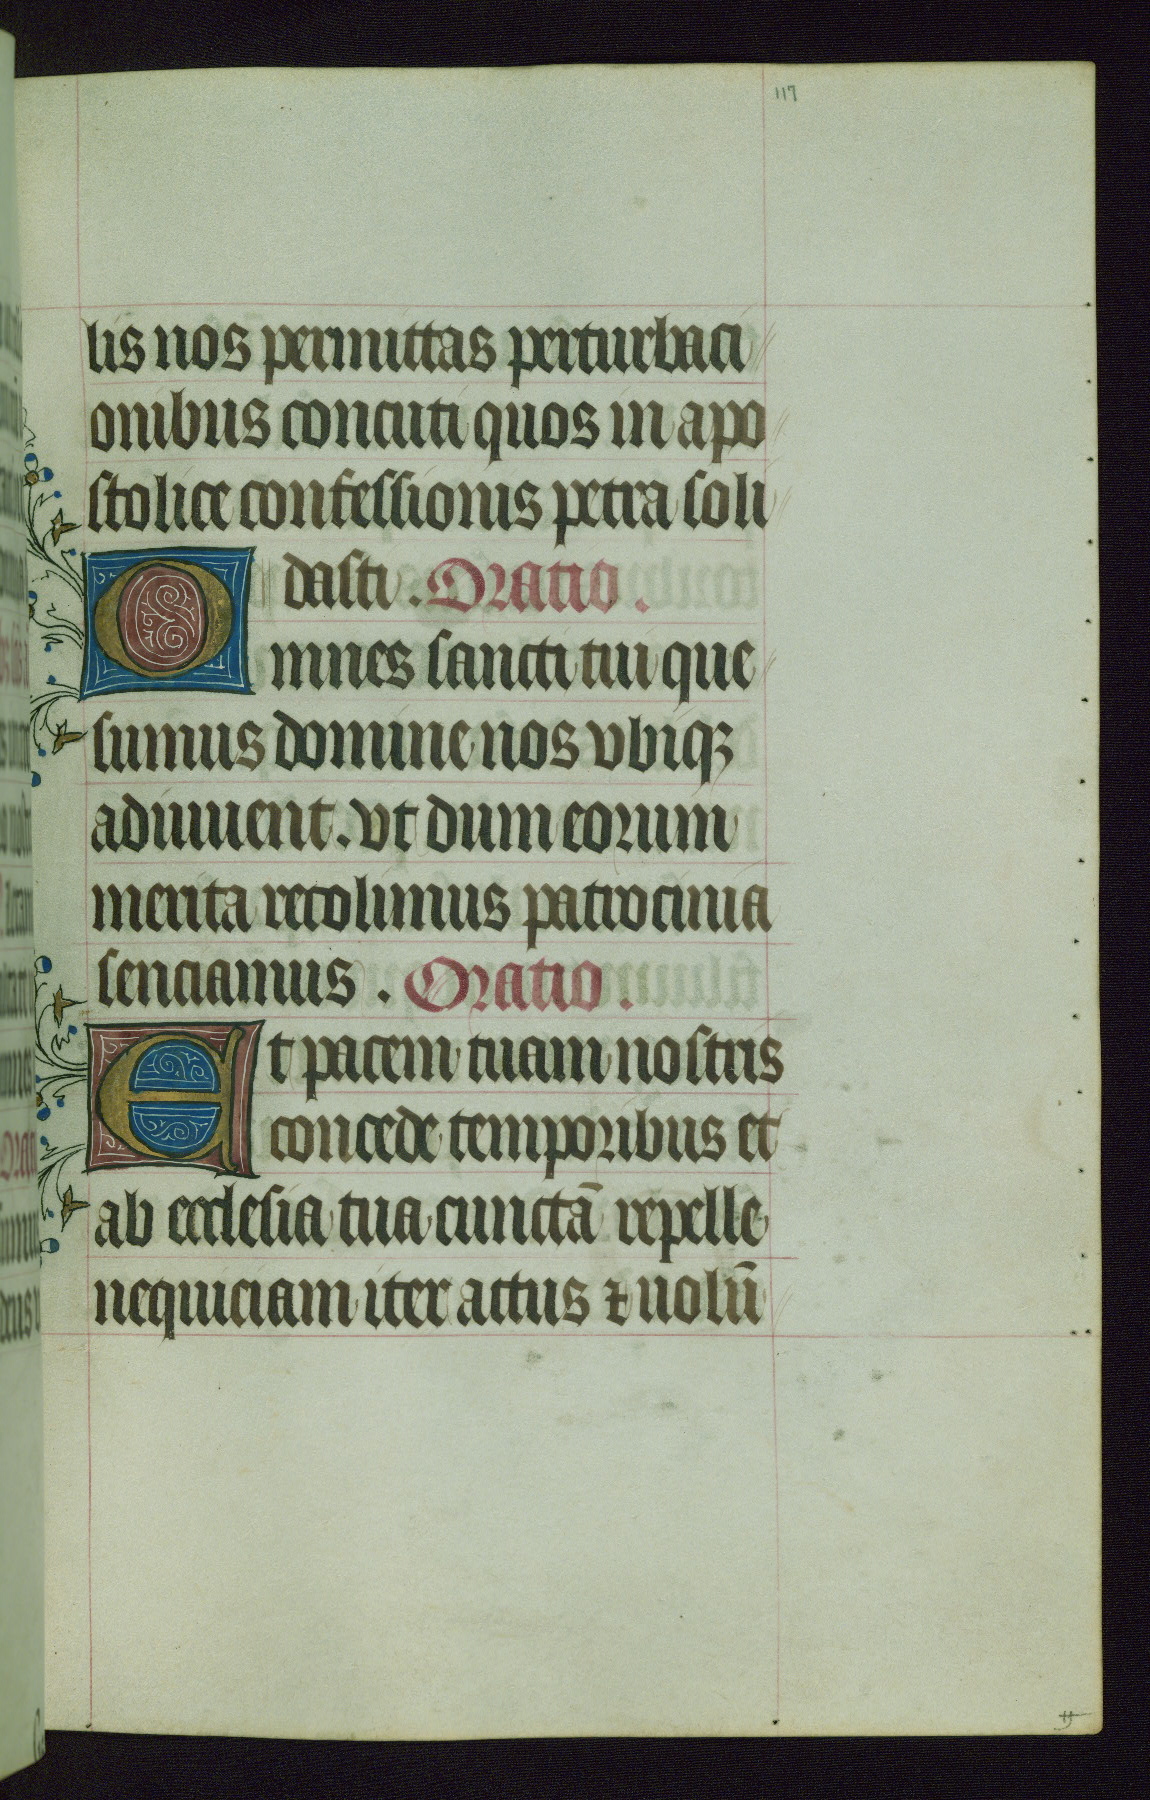 117
lis nos permittas perturbaci
onibus concuti quos in apo
stolice confessionis petra soli
dasti. Oratio.
Omnes sancti tui que
sumus domine nos vbiqꝫ
adiuuent. vt dum eorum
merita recolimus patrocinia
senciamus. Oratio.
Et pacem tuam nostris
concede temporibus et
ab ecclesia tua cunctā repelle
nequiciam iter actus ⁊ uolū